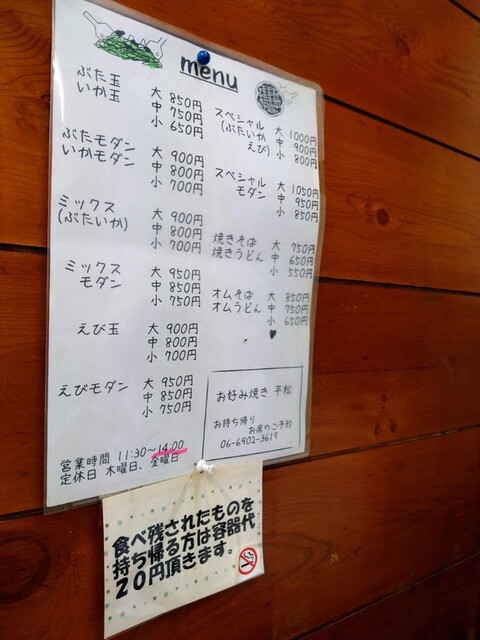 menu
ぶた玉
いか玉
大 850円
中 750円
小 650円
ぶたモダン
いかモダン
大 900円
中 800円
小 700円
ミックス
(ぶたいか)
大 900円
中 800円
小 700円
ミックス
モダン
大 950円
中 850円
小 750円
えび玉
大 900円
中 800円
小 700円
えびモダン
大 950円
中 850円
小 750円
スペシャル
(ぶたいか
えび)
大 1000円
中 900円
小 800円
スペシャル
モダン
大 1050円
中 950円
小 850円
焼きそば
焼きうどん
大 750円
中 650円
小 550円
オムそば
オムうどん
大 850円
中 750円
小 650円
お好み焼き 平松
お持ち帰り
お席のご予約
06-6902-3619
営業時間 11:30~14:00
定休日 木曜日、金曜日
食べ残されたものを
持ち帰る方は容器代
20円頂きます。